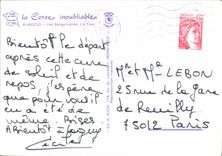 la Corse inoubliable
AJACCIO - Iles Sanguinaires. La Tour
Bientôt le départ
après cette cure
de soleil et de
repos, j'espère
que pour vous il
en a été de
même. Bises
A Bientôt
Cécile
Mr et Mme LEBON
25 rue de la gare
de Reuilly
75012 Paris